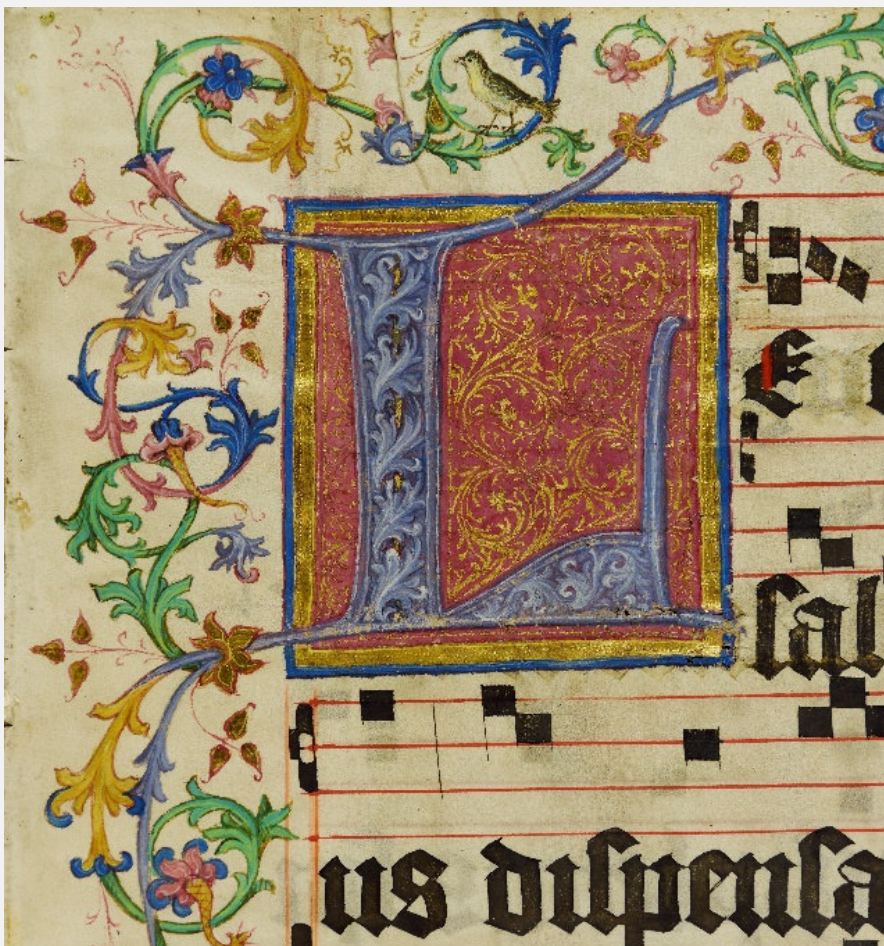 LE
ſal
us diſpenſa